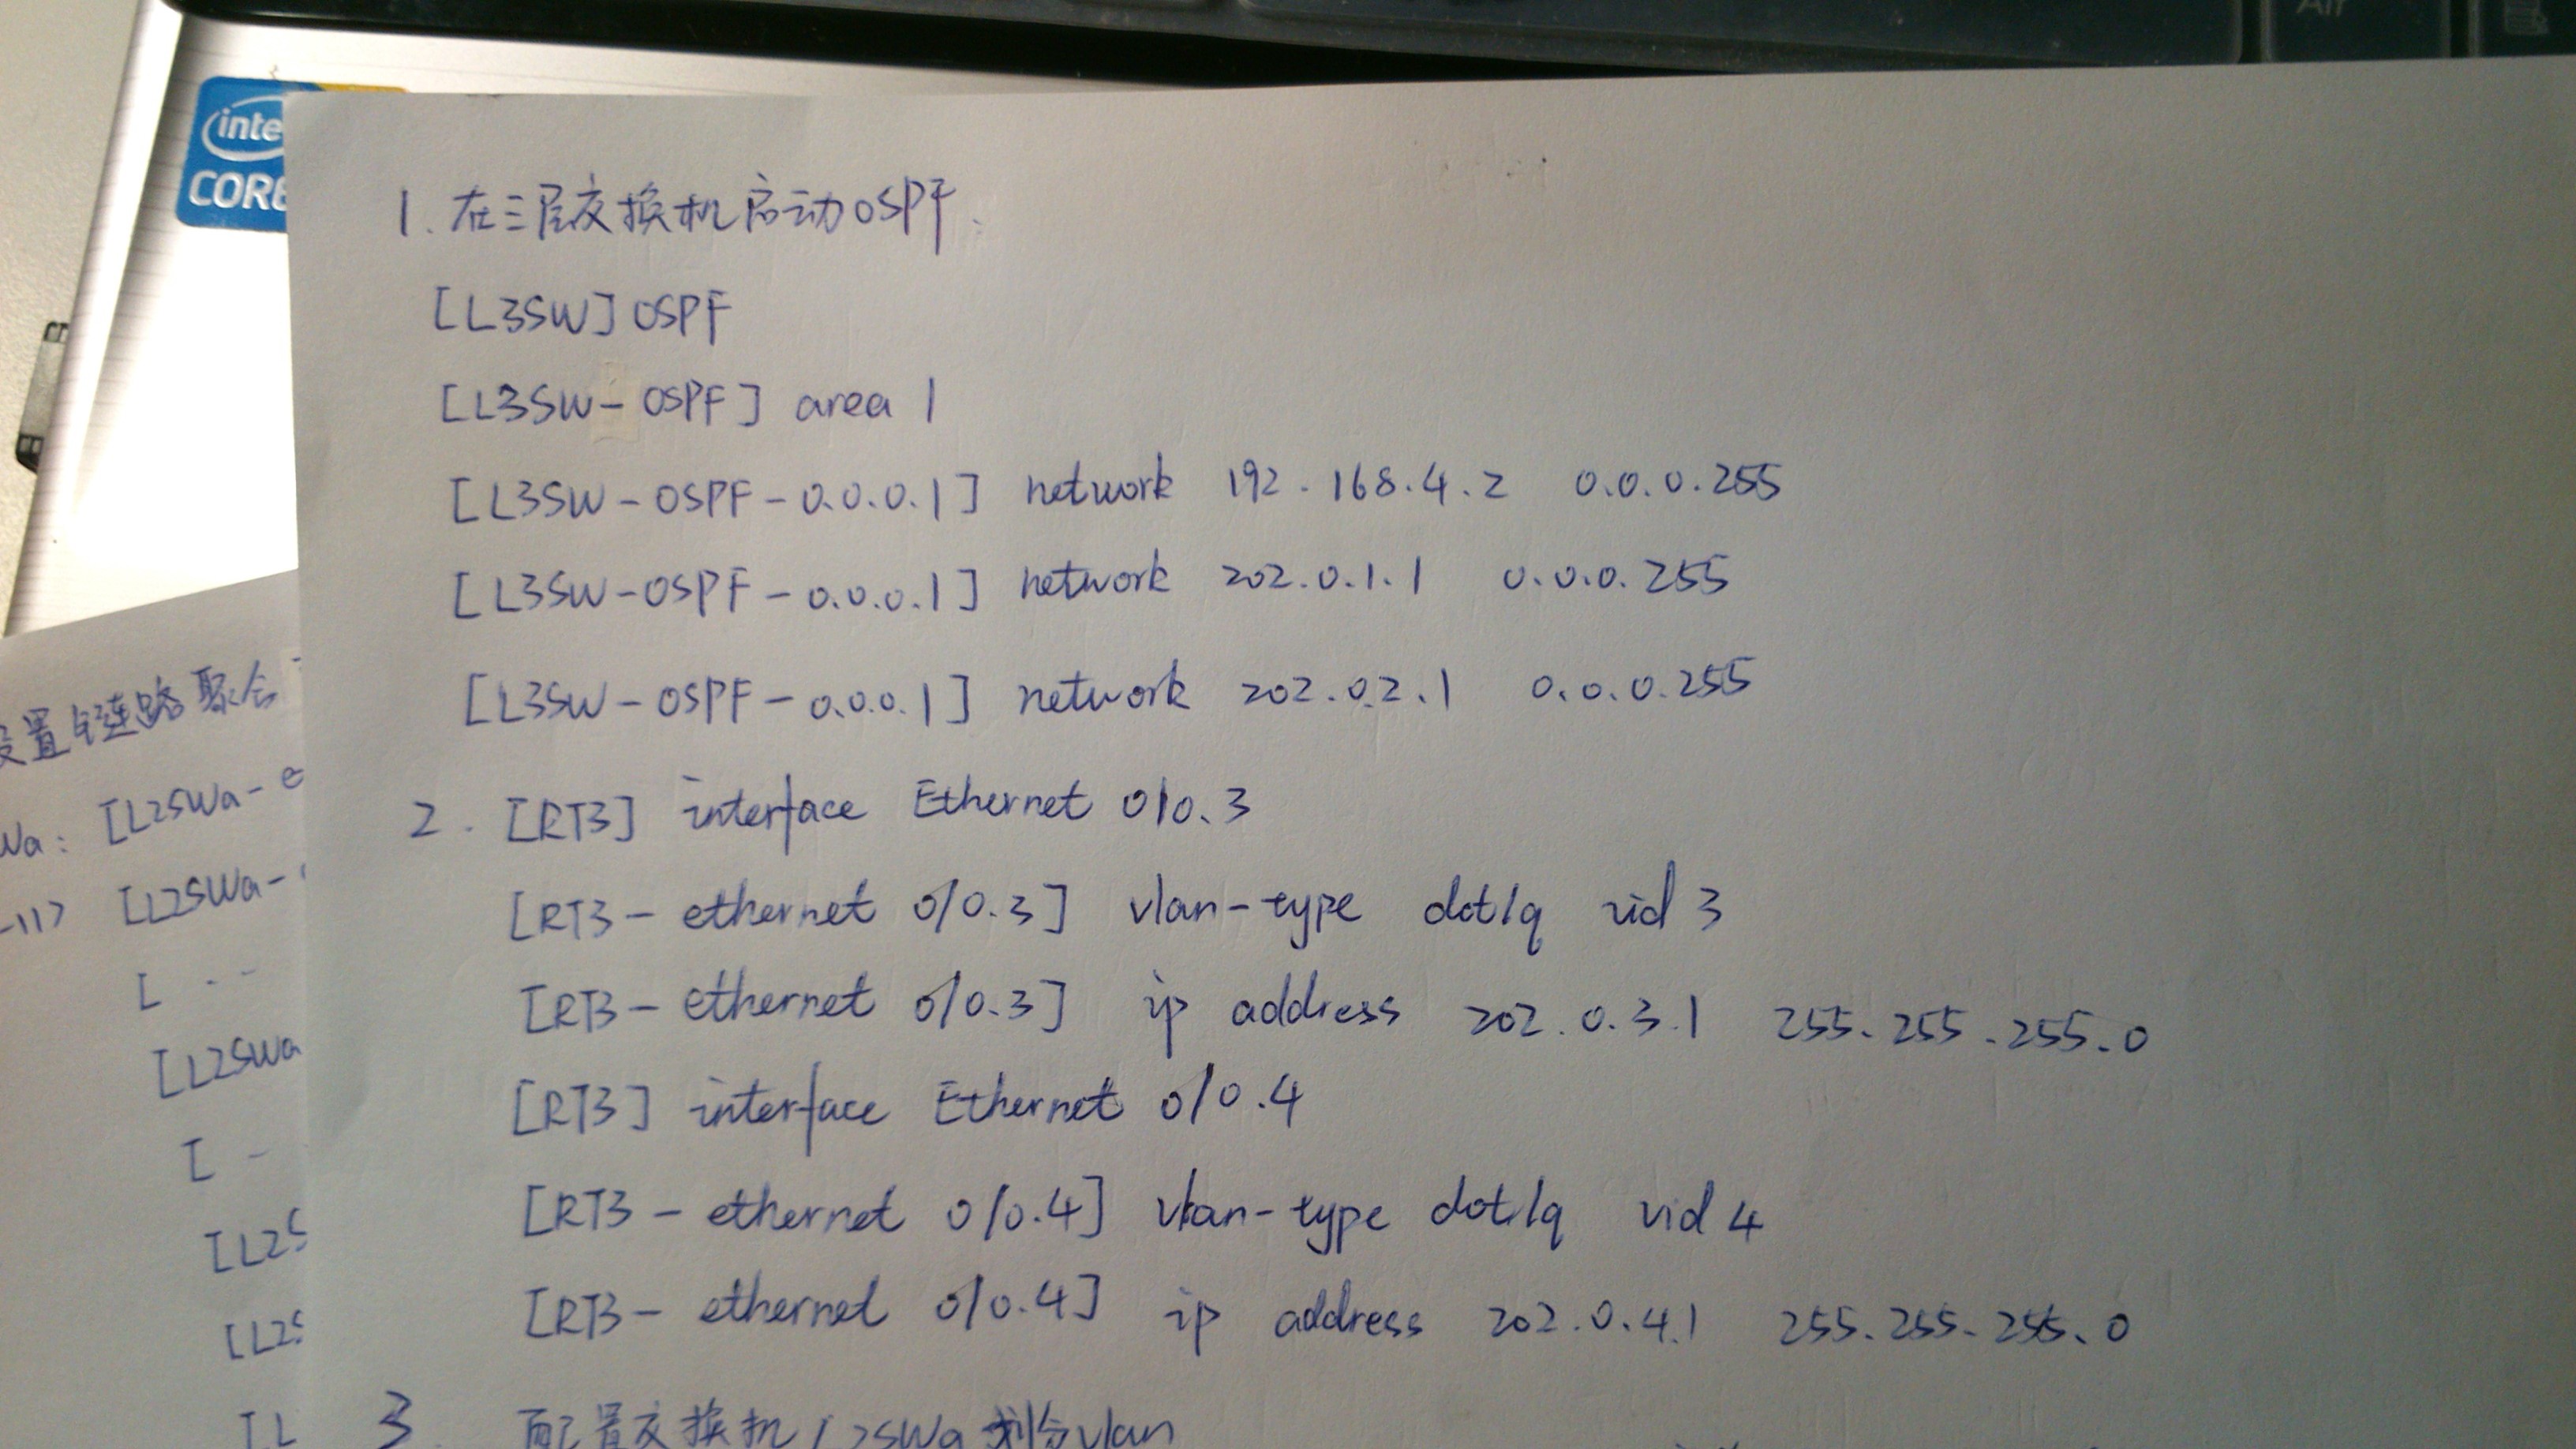 Alt
inte
CORE
1. 在三层交换机启动OSPF.
[L3SW] OSPF
[L3SW-OSPF] area 1
[L3SW-OSPF-0.0.0.1] network 192.168.4.2 0.0.0.255
[L3SW-OSPF-0.0.0.1] network 202.0.1.1 0.0.0.255
[L3SW-OSPF-0.0.0.1] network 202.0.2.1 0.0.0.255
2. [RT3] interface Ethernet 0/0.3
[RT3-ethernet 0/0.3] vlan-type dot1q vid 3
[RT3-ethernet 0/0.3] ip address 202.0.3.1 255.255.255.0
[RT3] interface Ethernet 0/0.4
[RT3-ethernet 0/0.4] vlan-type dot1q vid 4
[RT3-ethernet 0/0.4] ip address 202.0.4.1 255.255.255.0
3. 配置交换机L2SWa 划分vlan
设置链路聚合
Wa: [L2SWa-e
[L2SWa-
[ --
[L2SWa
[ -
[L2S
[L2S
[L